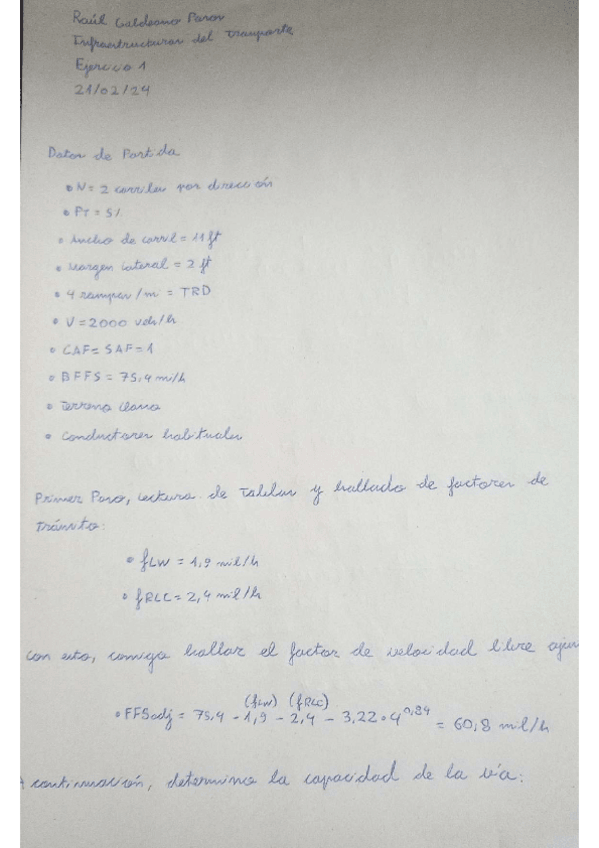 Raúl Galdeano Pardo
Infraestructuras del Transporte
Ejercicio 1
21/02/24
Datos de Partida
• N = 2 carriles por dirección
• PT = 5%
• Ancho de carril = 11 ft
• Margen lateral = 2 ft
• 4 rampas / mi = TRD
• V = 2000 veh/h
• CAF = SAF = 1
• BFFS = 75,4 mi/h
• Terreno llano
• Conductores habituales
Primer Paso, lectura de Tablas y hallado de factores de
tránsito:
• fLW = 1,9 mil/h
• fRLC = 2,4 mil/h
con esto, consigo hallar el factor de velocidad libre ajus
(fLW) (fRLC)
• FFSadj = 75,4 - 1,9 - 2,4 - 3,22 · 4^0,84 = 60,8 mil/h
A continuación, determino la capacidad de la vía: